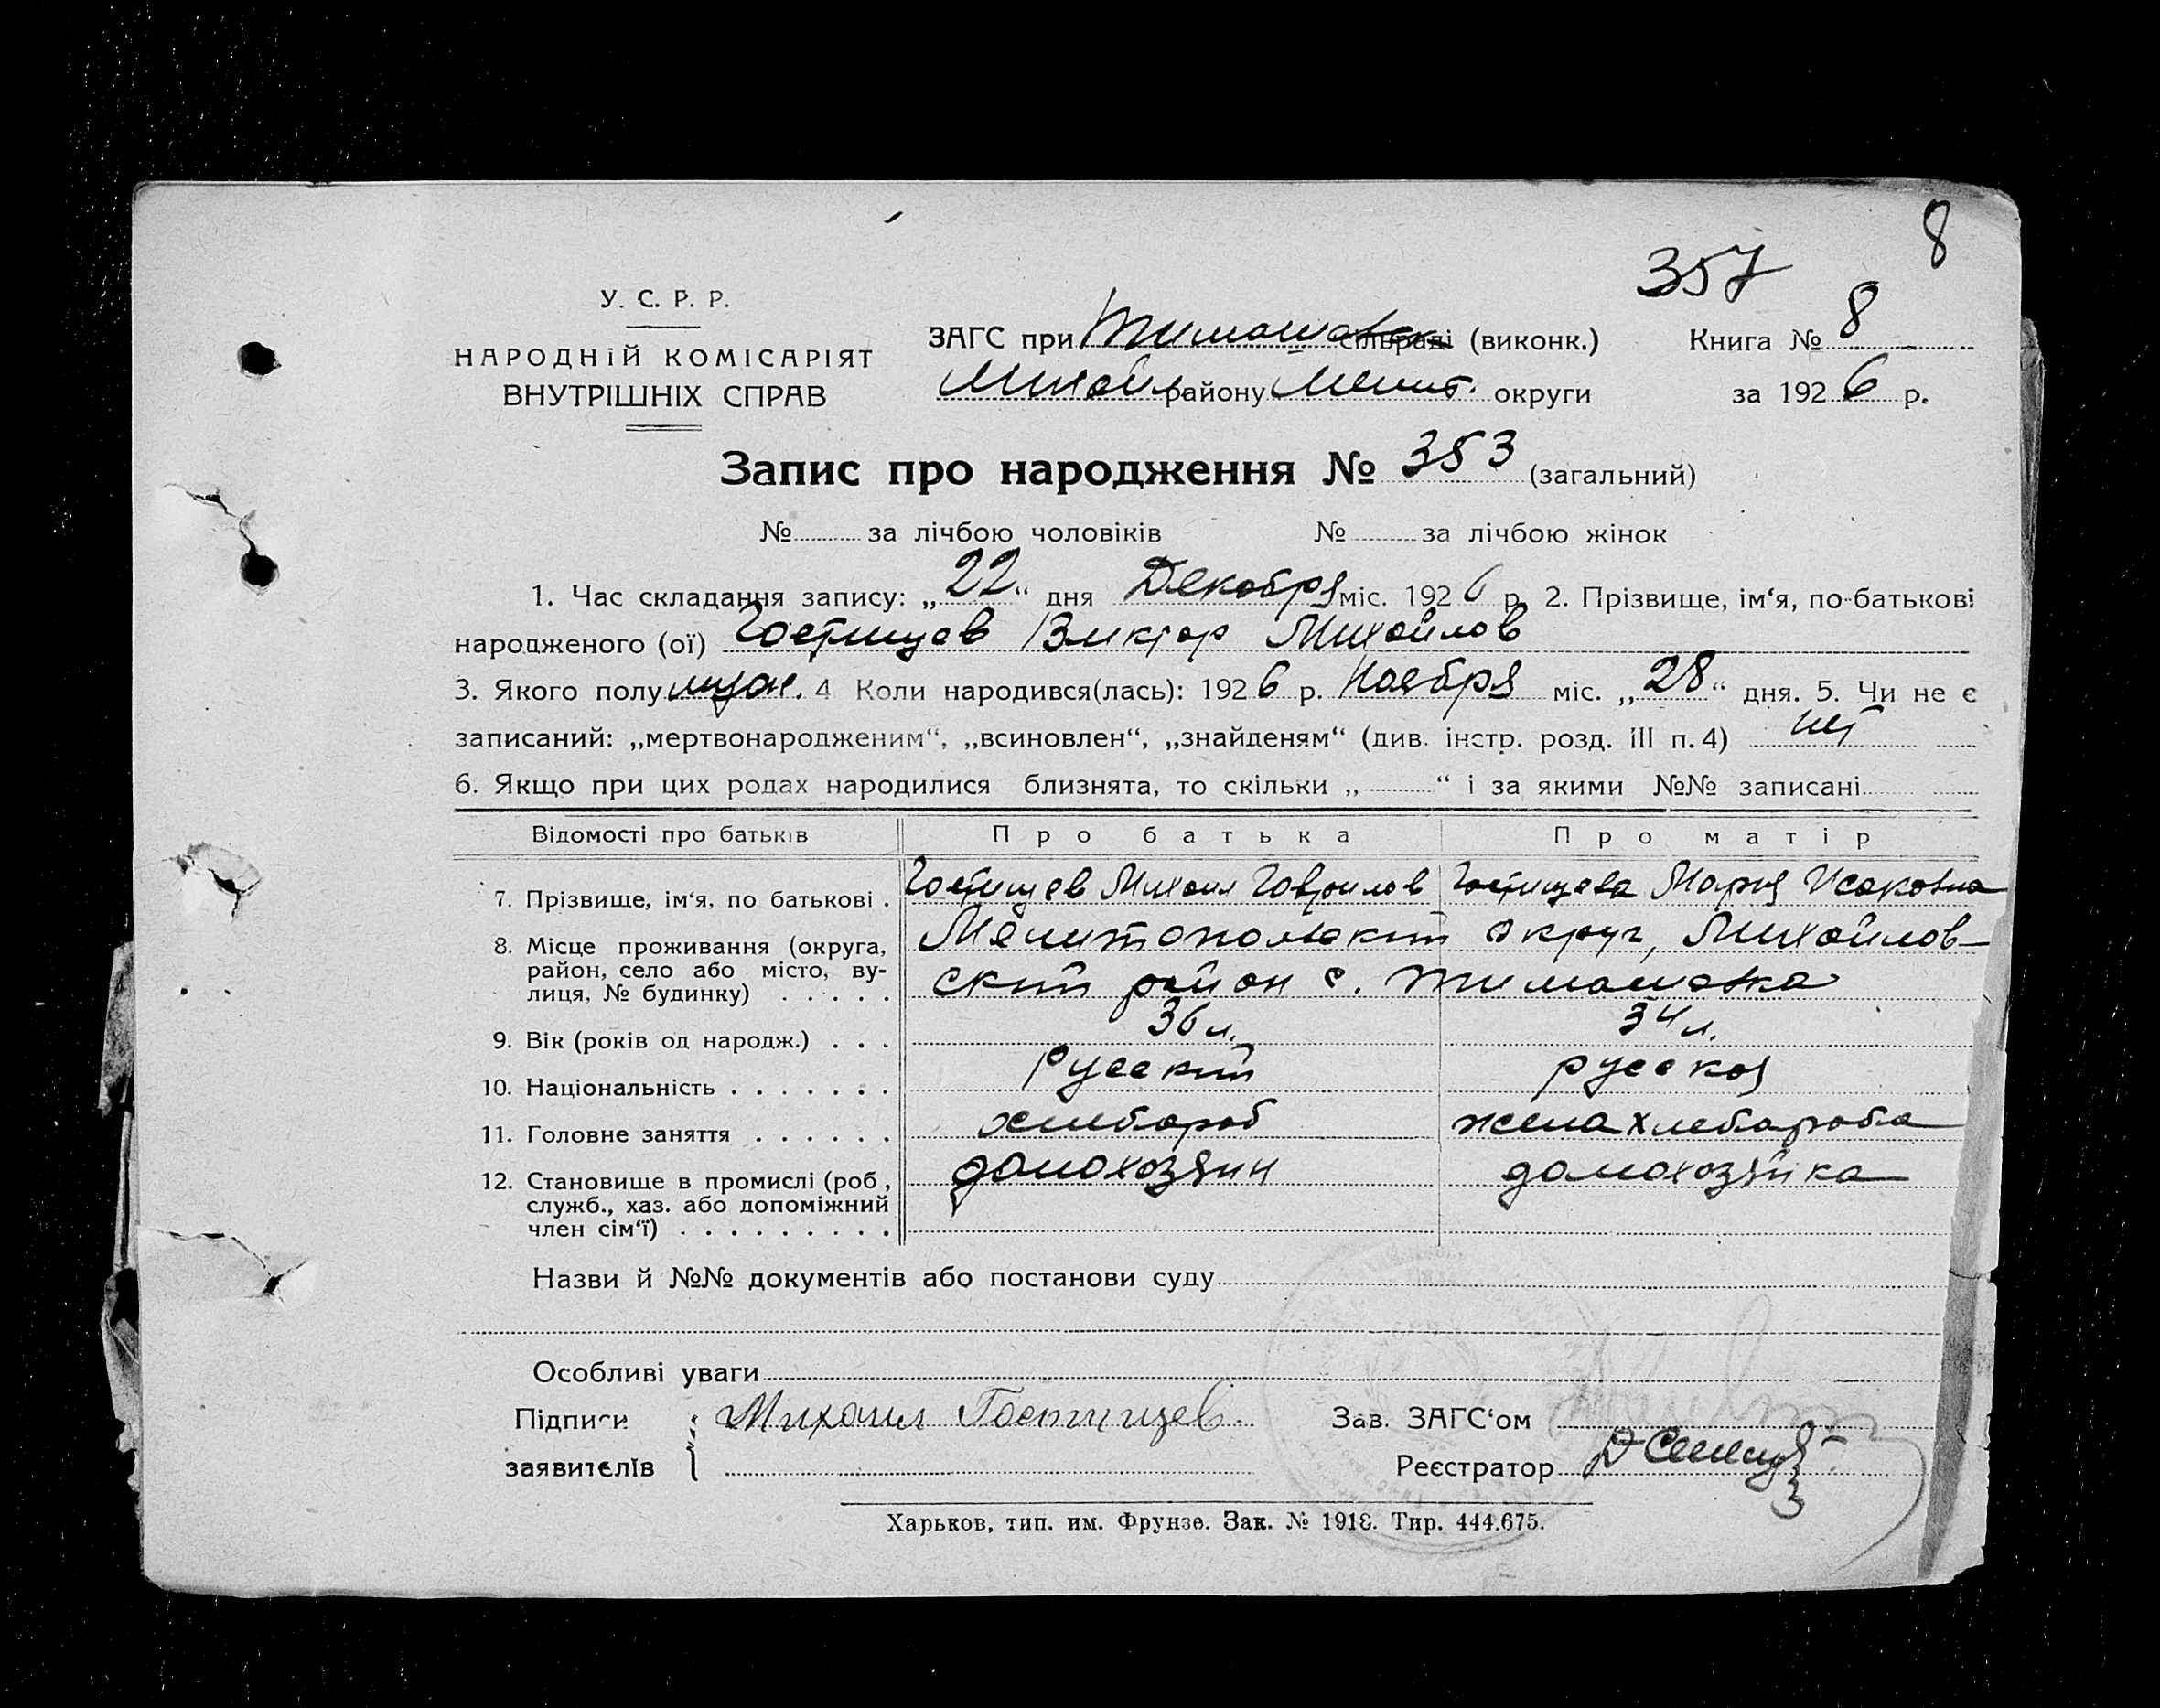 8
357
У. С. Р. Р.
НАРОДНІЙ КОМІСАРІЯТ
ВНУТРІШНІХ СПРАВ
ЗАГС при Тимошовск сільраді (виконк.)
Книга № 8
Михайл району Мелит. округи
за 1926 р.
Запис про народження № 353 (загальний)
№ за лічбою чоловіків № за лічбою жінок
1. Час складання запису: „22“ дня Декабря міс. 1926 р. 2. Прізвище, ім‘я, по-батькові
народженого (ої) Гостищев Виктор Михайлов
3. Якого полу муж. 4 Коли народився(лась): 1926 р. Ноября міс. „28“ дня. 5. Чи не є
записаний: „мертвонародженим“, „всиновлен“, „знайденям“ (див. інстр. розд. III п. 4) нет
6. Якщо при цих родах народилися близнята, то скільки „ “ і за якими №№ записані
Відомості про батьків Про батька Про матір
7. Прізвище, ім‘я, по батькові . Гостищев Михаил Гаврилов Гостищева Мария Исаковна
8. Місце проживання (округа, район, село або місто, вулиця, № будинку) . . . . . Мелитопольский округ, Михайлов-
ский район с. Тимошовка
9. Вік (років од народж.) . . . 36 л. 34 л.
10. Національність . . . . . . . Русский русская
11. Головне заняття . . . . . . хлебороб жена хлебароба
12. Становище в промислі (роб, служб., хаз. або допоміжний член сім‘ї) . . . . . . . . . домохозяин домохозяйка
Назви й №№ документів або постанови суду
Особливі уваги
Підписи Михаил Гостищев. Зав. ЗАГС‘ом
заявителів Реєстратор
Харьков, тип. им. Фрунзе. Зак. № 1918. Тир. 444.675.